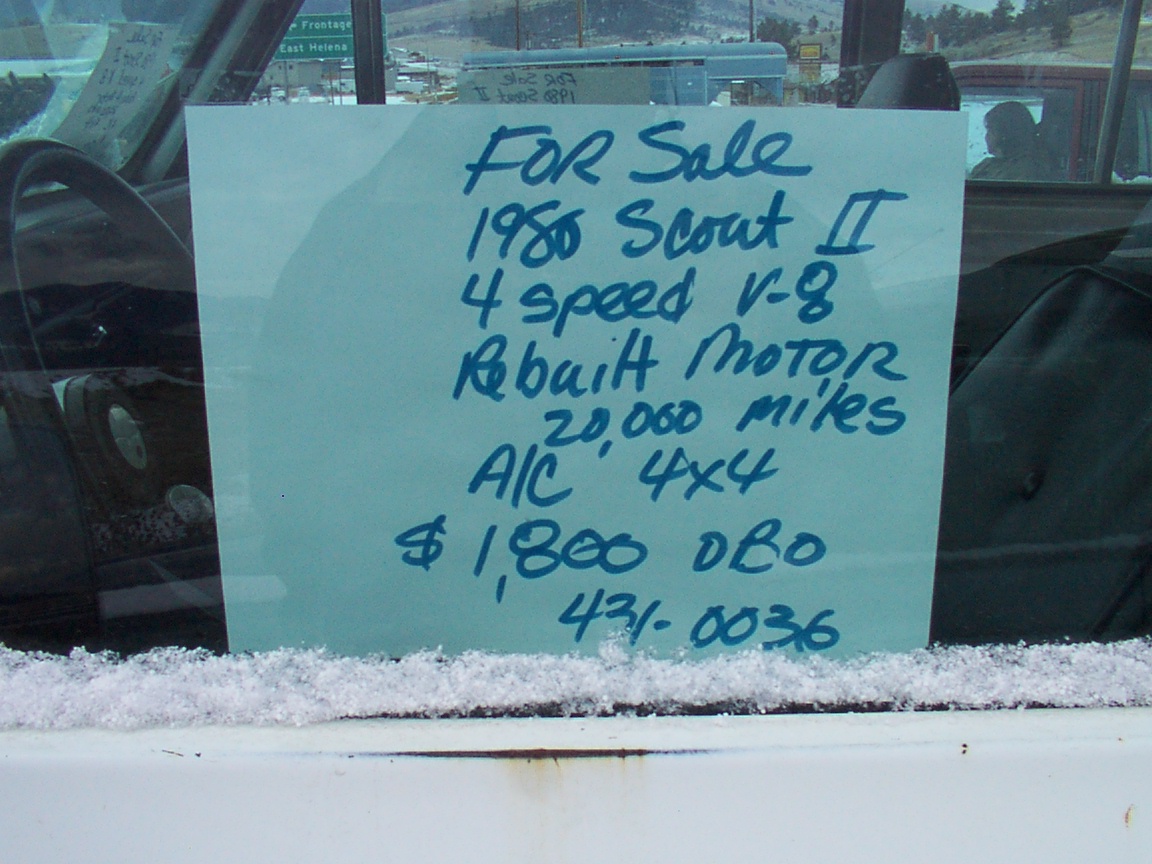 Frontage
East Helena
FOR Sale
1980 Scout II
FOR Sale
1980 Scout II
4 speed V-8
Rebuilt MOTOR
20,000 miles
A/C 4x4
$ 1,800 OBO
431-0036